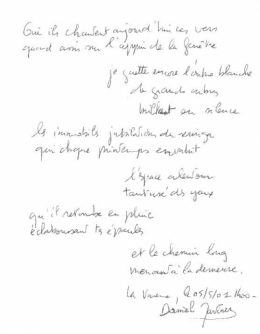 Où ils chantent aujourd'hui ces vers
quand assis sur l'appui de la fenêtre
je guette encore l'ombre blanche
de grands arbres
brillant en silence
les immobiles jubilations du
qui chaque printemps
l'espace alentour
des yeux
qu'il retombe en pluie
éclaboussant tes épaules
et le chemin long
menant à la demeure.
La, le 05/5/02
Daniel